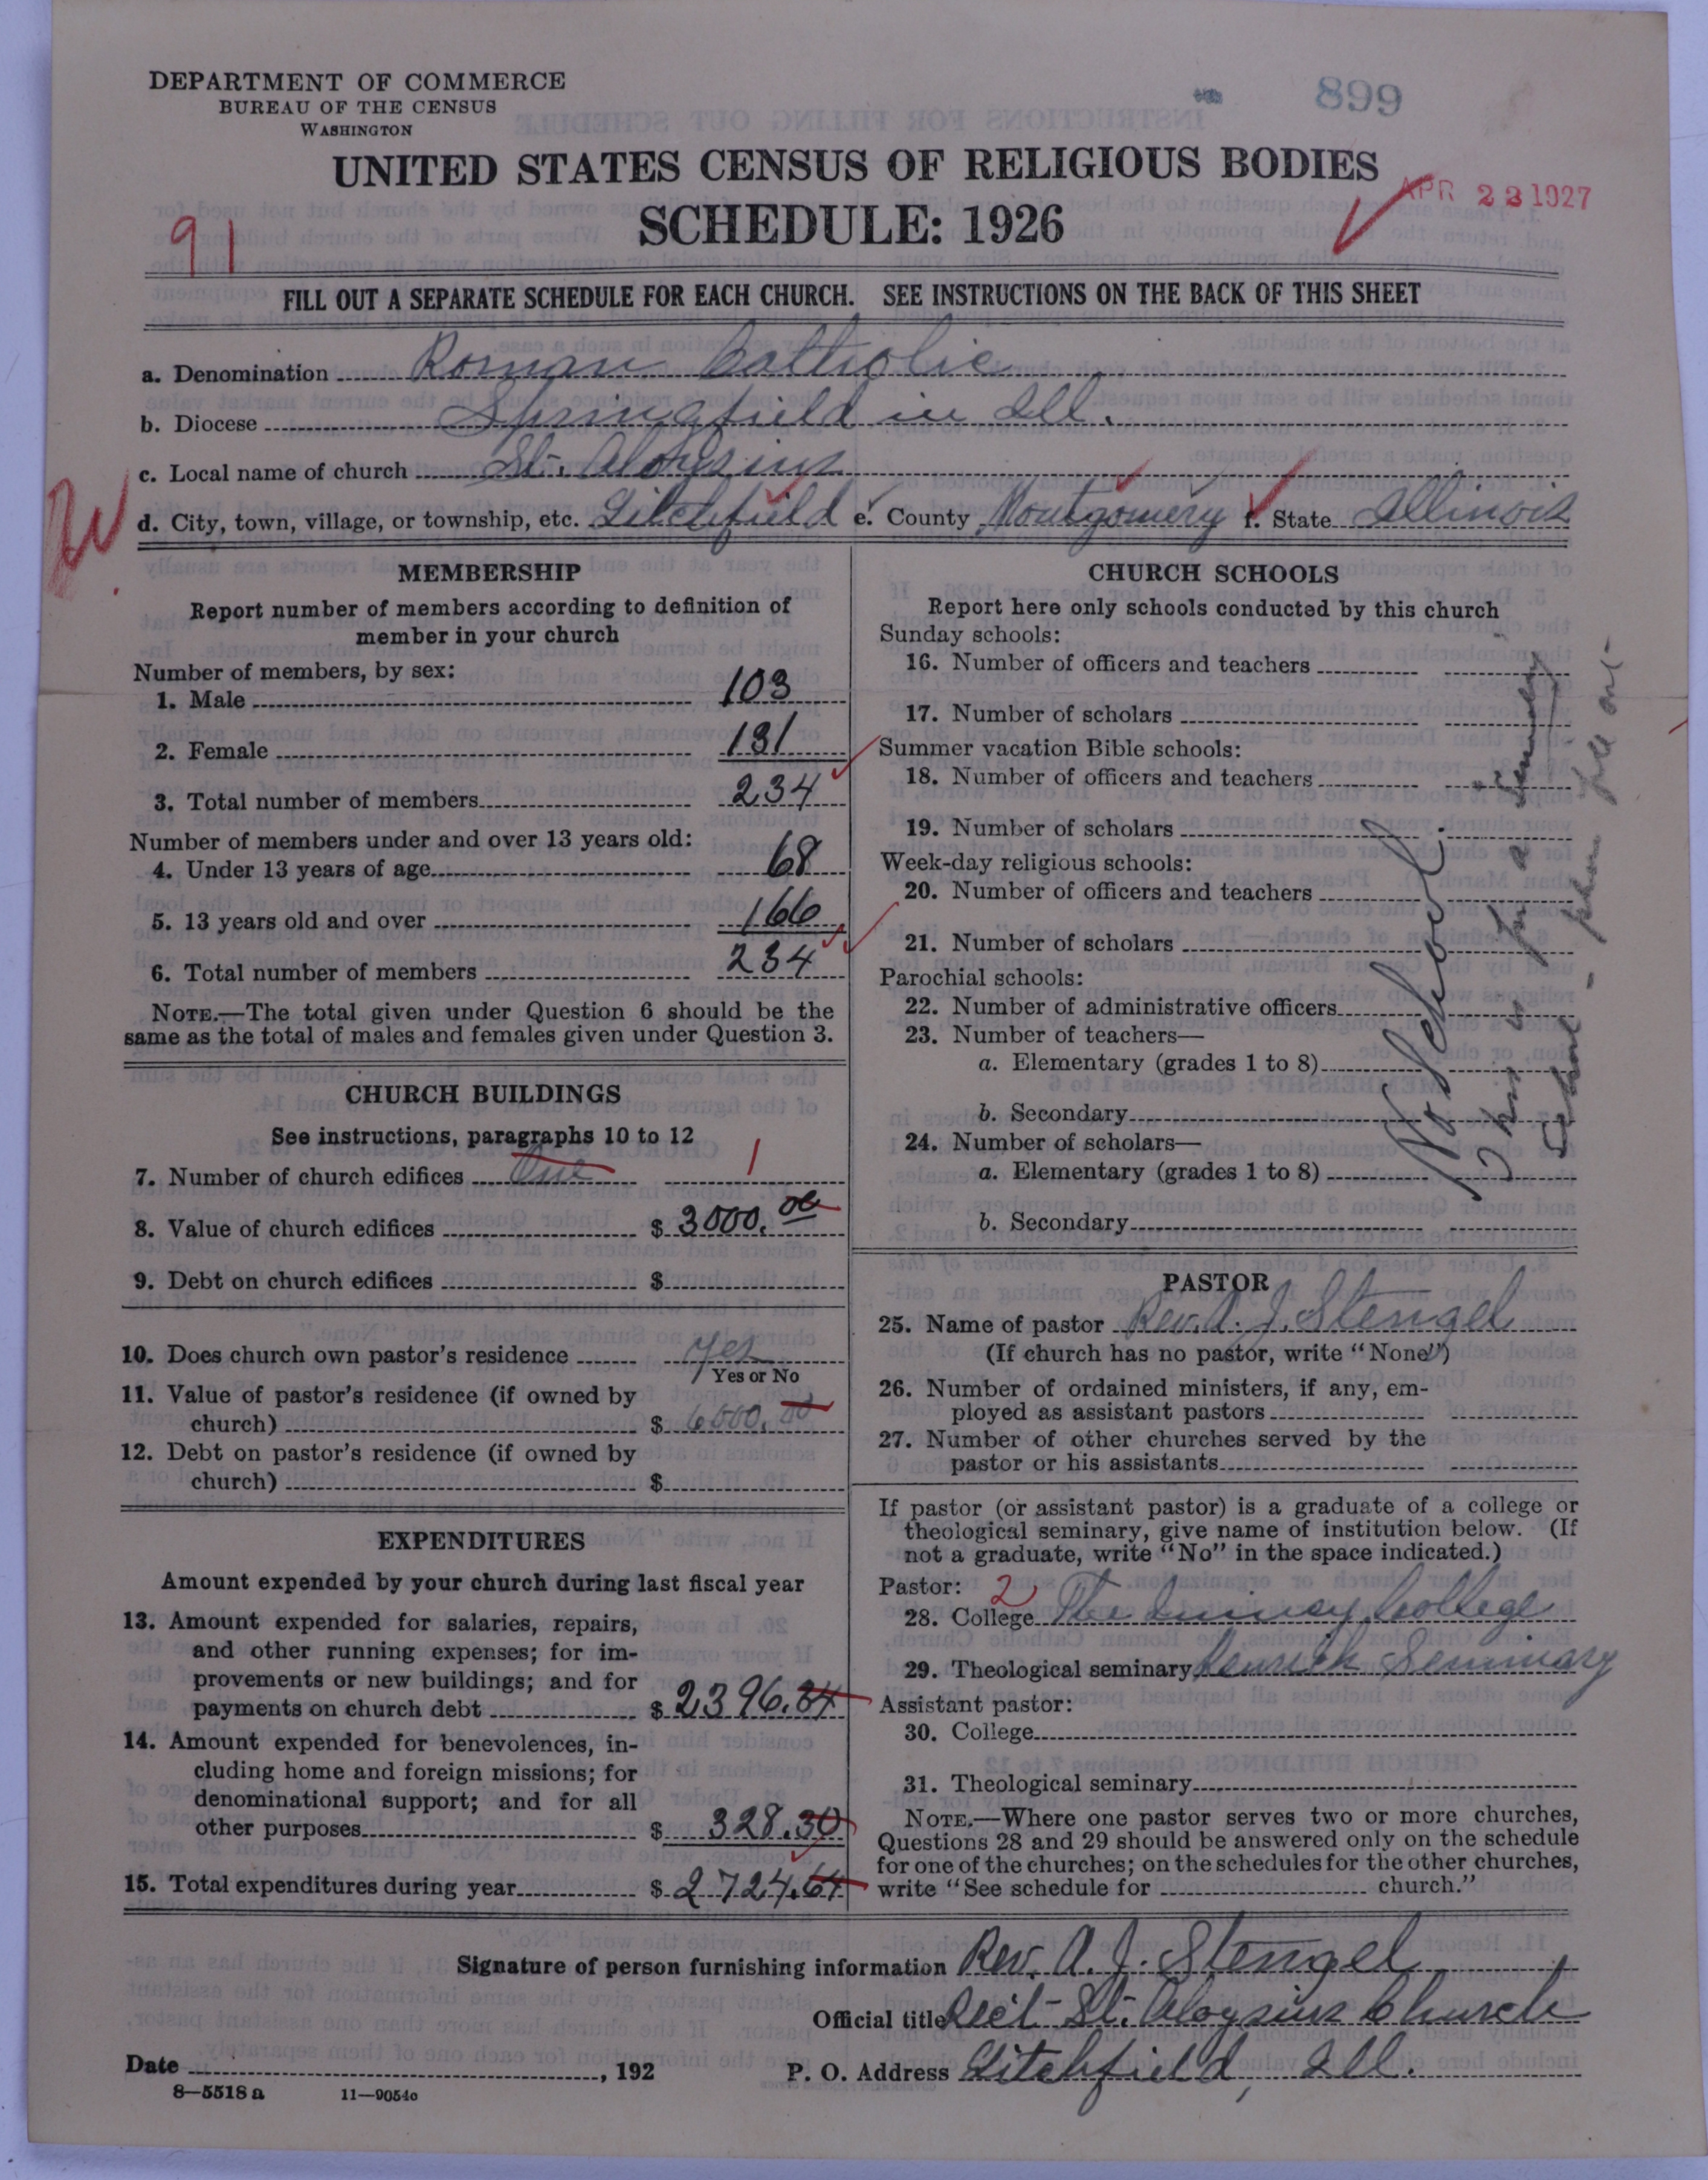 DEPARTMENT OF COMMERCE
BUREAU OF THE CENSUS
WASHINGTON
899
UNITED STATES CENSUS OF RELIGIOUS BODIES
APR 23 1927
SCHEDULE: 1926
91
FILL OUT A SEPARATE SCHEDULE FOR EACH CHURCH. SEE INSTRUCTIONS ON THE BACK OF THIS SHEET
a. Denomination Roman Catholic
b. Diocese Springfield in Ill.
c. Local name of church St. Aloysius
d. City, town, village, or township, etc. Litchfield e. County Montgomery f. State Illinois
MEMBERSHIP
Report number of members according to definition of
member in your church
Number of members, by sex:
1. Male 103
2. Female 131
3. Total number of members 234
Number of members under and over 13 years old:
4. Under 13 years of age 68
5. 13 years old and over 166
6. Total number of members 234
NOTE.—The total given under Question 6 should be the
same as the total of males and females given under Question 3.
CHURCH BUILDINGS
See instructions, paragraphs 10 to 12
7. Number of church edifices One 1
8. Value of church edifices $ 3000.00
9. Debt on church edifices $
10. Does church own pastor's residence yes
Yes or No
11. Value of pastor's residence (if owned by
church) $ 6000.00
12. Debt on pastor's residence (if owned by
church) $
EXPENDITURES
Amount expended by your church during last fiscal year
13. Amount expended for salaries, repairs,
and other running expenses; for im-
provements or new buildings; and for
payments on church debt $ 2396.34
14. Amount expended for benevolences, in-
cluding home and foreign missions; for
denominational support; and for all
other purposes $ 328.30
15. Total expenditures during year $ 2724.64
CHURCH SCHOOLS
Report here only schools conducted by this church
Sunday schools:
16. Number of officers and teachers
17. Number of scholars
Summer vacation Bible schools:
18. Number of officers and teachers
19. Number of scholars
Week-day religious schools:
20. Number of officers and teachers
21. Number of scholars
Parochial schools:
22. Number of administrative officers
23. Number of teachers—
a. Elementary (grades 1 to 8)
b. Secondary
24. Number of scholars—
a. Elementary (grades 1 to 8)
b. Secondary
No School.
PASTOR
25. Name of pastor Rev. A. J. Stengel
(If church has no pastor, write "None")
26. Number of ordained ministers, if any, em-
ployed as assistant pastors
27. Number of other churches served by the
pastor or his assistants
If pastor (or assistant pastor) is a graduate of a college or
theological seminary, give name of institution below. (If
not a graduate, write "No" in the space indicated.)
Pastor: 2
28. College The Quincy College
29. Theological seminary Kenrick Seminary
Assistant pastor:
30. College
31. Theological seminary
NOTE.—Where one pastor serves two or more churches,
Questions 28 and 29 should be answered only on the schedule
for one of the churches; on the schedules for the other churches,
write "See schedule for church."
Signature of person furnishing information Rev. A. J. Stengel
Official title Rect St. Aloysius Church
Date , 192 P. O. Address Litchfield, Ill.
8—5518 a 11—9054o